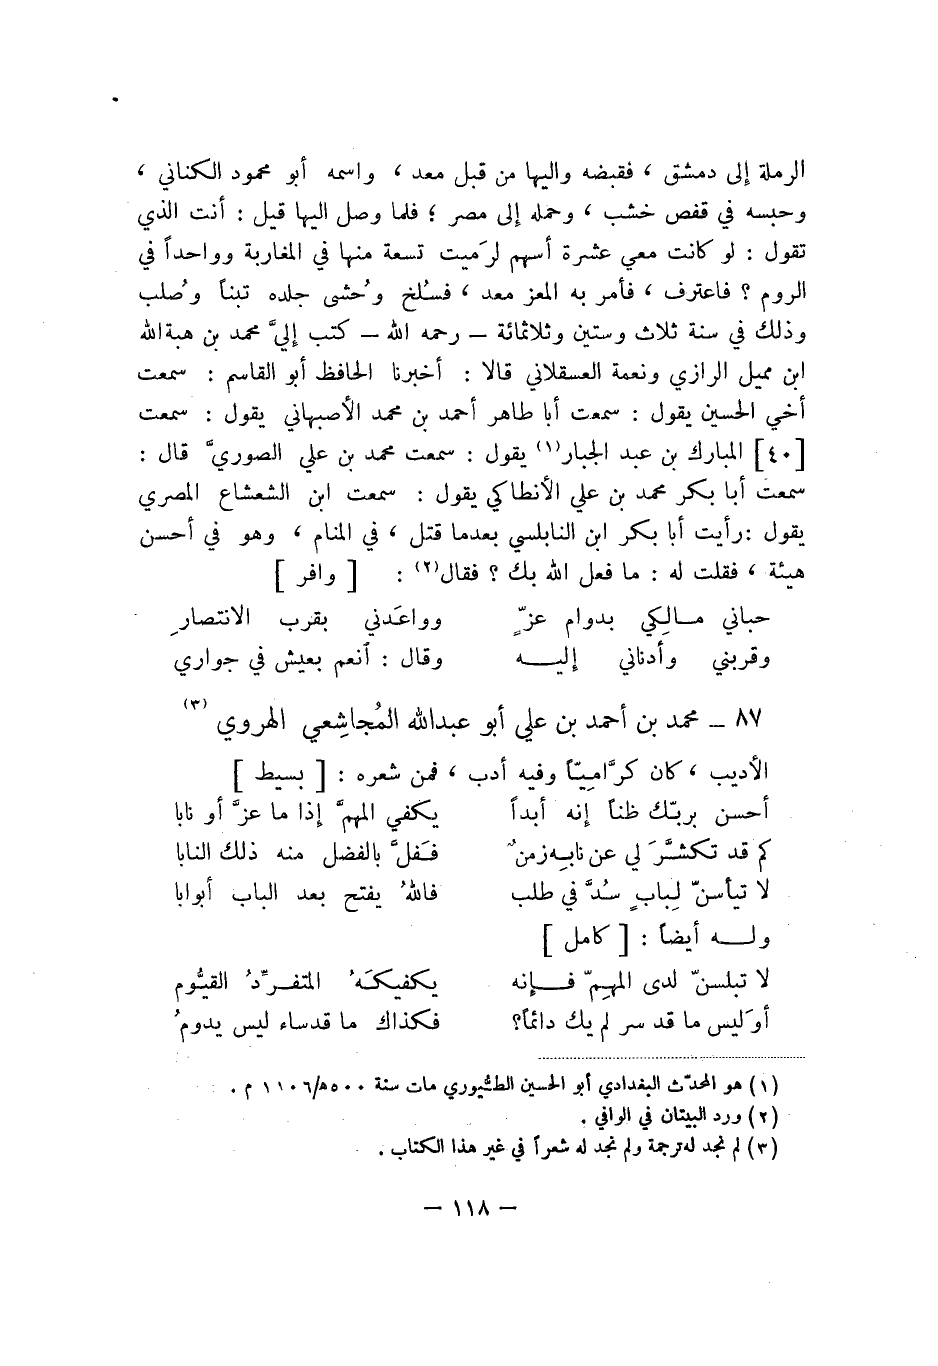 الرملة إلى دمشق ، فقبضه واليها من قبل معد ، واسمه أبو محمود الكناني ،
وحبسه في قفص خشب ، وحمله إلى مصر ؛ فلما وصل اليها قيل : أنت الذي
تقول : لو كانت معي عشرة أسهم لرَميت تسعة منها في المغاربة وواحداً في
الروم ؟ فاعترف ، فأمر به المعز معد ، فسُلخ وحُشى جلده تبناً وصُلب
وذلك في سنة ثلاث وستين وثلاثمائة – رحمه الله – كتب إليَّ محمد بن هبةالله
ابن مميل الرازي ونعمة العسقلاني قالا : أخبرنا الحافظ أبو القاسم : سمعت
أخي الحسين يقول : سمعت أبا طاهر أحمد بن محمد الأصبهاني يقول : سمعت
[٤٠] المبارك بن عبد الجبار(١) يقول : سمعت محمد بن علي الصوريَّ قال :
سمعت أبا بكر محمد بن علي الأنطاكي يقول : سمعت ابن الشعشاع المصري
يقول :رأيت أبا بكر ابن النابلسي بعدما قتل ، في المنام ، وهو في أحسن
هيئة ، فقلت له : ما فعل الله بك ؟ فقال(٢) : [ وافر ]
حباني مالِكي بدوام عزّ وواعَدني بقرب الانتصارِ
وقربني وأدناني إليه وقال : أنعم بعيش في جواري
٨٧ – محمد بن أحمد بن علي أبو عبدالله المُجاشِعي الهروي (٣)
الأديب ، كان كرَّاميّاً وفيه أدب ، فمن شعره : [ بسيط ]
أحسن بربّك ظناً إنه أبداً يكفي المهمَّ إذا ما عزَّ أو نابا
كم قد تكشَّرَ لي عن نابِه زمنٌ ففَلَّ بالفضل منه ذلك النابا
لا تيأسنّ لِبابٍ سُدَّ في طلب فاللهُ يفتح بعد الباب أبوابا
وله أيضاً : [ كامل ]
لا تبلسنّ لدى المهِمّ فإنه يكفيكَهُ المتفرِّدُ القيُّوم
أوَليس ما قد سر لم يك دائماً؟ فكذاك ما قدساء ليس يدومُ
(١) هو المحدّث البغدادي أبو الحسين الطُّيوري مات سنة ٥٠٠ه/١١٠٦ م .
(٢) ورد البيتان في الوافي .
(٣) لم نجد له ترجمة ولم نجد له شعراً في غير هذا الكتاب .
– ١١٨ –